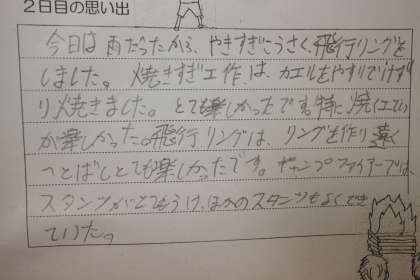 2日目の思い出
今日は雨だったから、やきすぎこうさく、飛行リングを
しました。焼きすぎ工作は、カエルをやすりでけず
り焼きました。とても楽しかったです。特に焼く工てい
が楽しかった。飛行リングは、リングを作り遠く
へとばしとても楽しかったです。キャンプファイアーでは、
スタンツがとてもうけ、ほかのスタンツもよくでき
ていた。